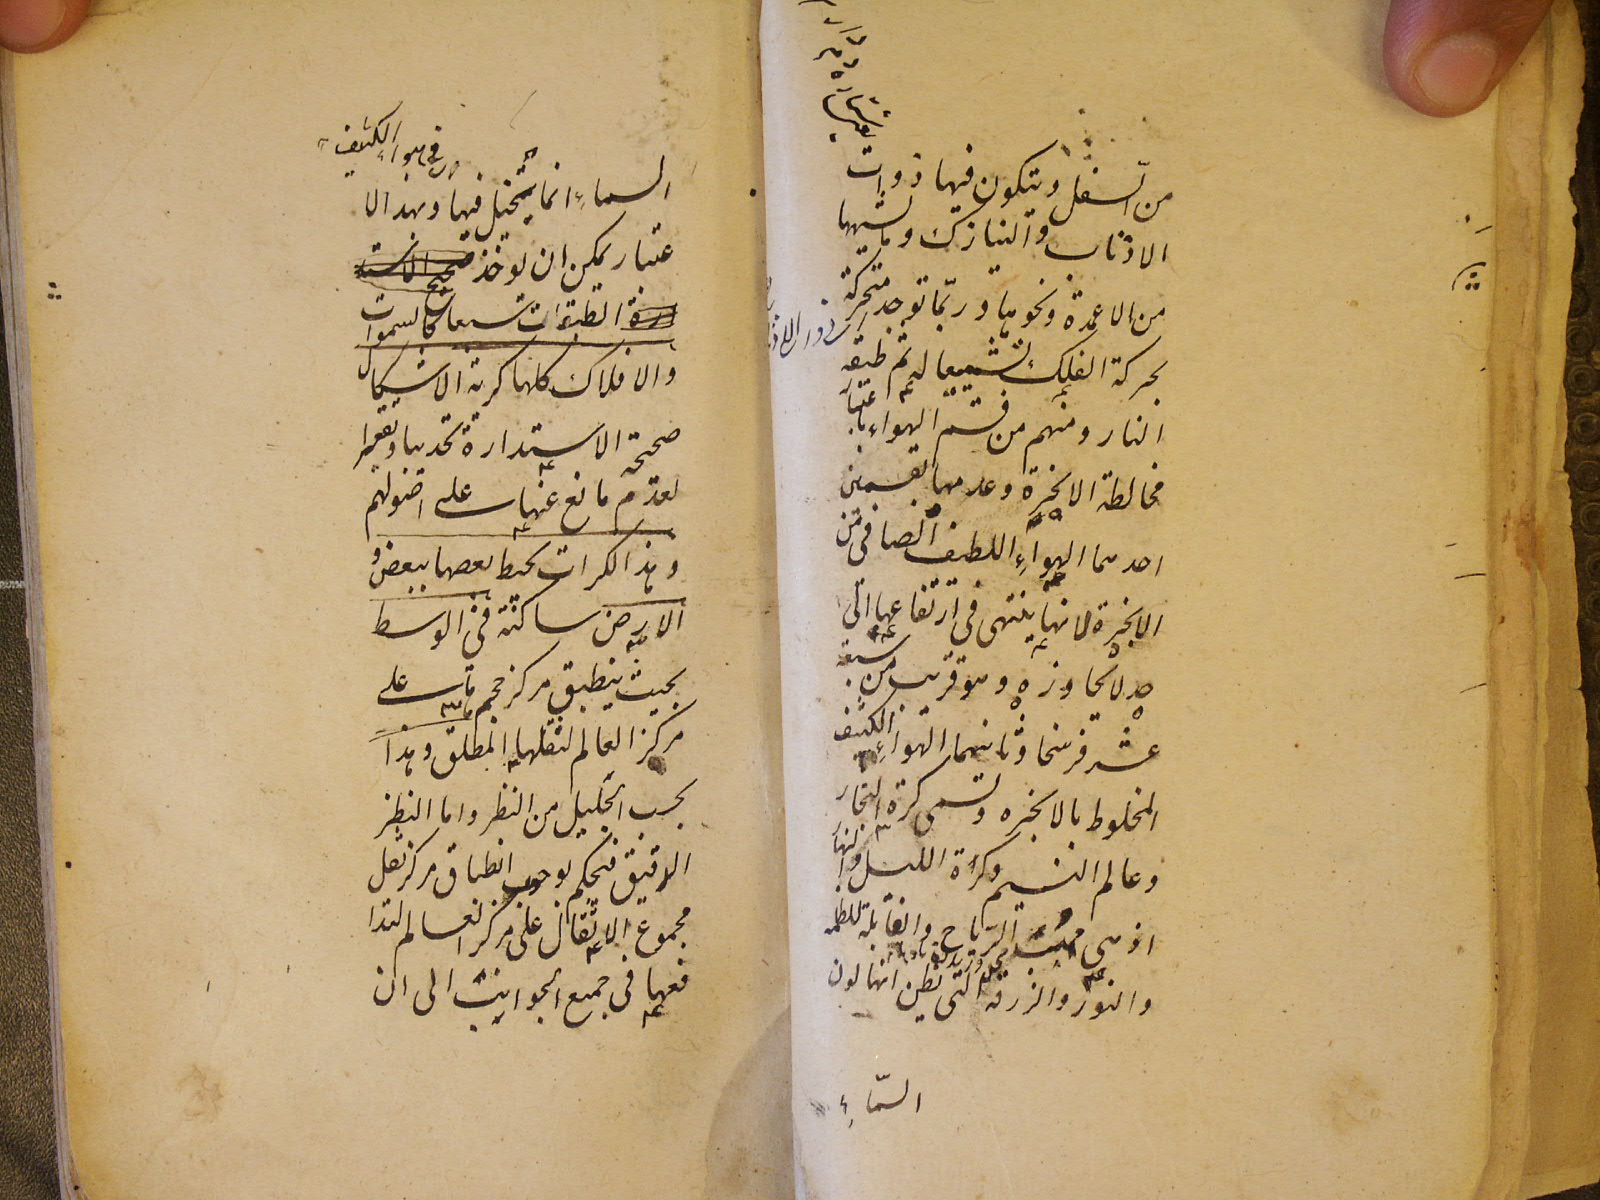 من السفل ويتكون فيها ذوات
الاذناب والنيازك وما يشبهها
من الاعمدة ونحوها وربما توجد متحركة
بحركة الفلك تشييعا له ثم طبقة
النار ومنهم من قسم الهواء باعتبار
مخالطة الابخرة وعدمها بقسمين
احدهما الهواء اللطيف الصافي من
الابخرة لانها ينتهى في ارتفاعها الى
حد لا يجاوزه وهو قريب من سبعة
عشر فرسخا وثانيهما الهواء الكثيف
المخلوط بالابخرة وتسمى كرة البخار
وعالم النسيم وكرة الليل والنهار
اذ هي مهب الرياح والقابلة للظلمة
والنور والزرقة التي تظن انها لون
السماء
في هواء الكثيف
السماء انما يتخيل فيها وبهذا الا
عتبار يمكن ان يوخذ
الطبقات سبعا كالسموات
والافلاك كلها كرية الاشكال
صحيحة الاستدارة تحديبا وتقعيرا
لعدم مانع عنها على اصولهم
وهذا الكرات يحيط بعضها ببعض و
الارض ساكنة في الوسط
بحيث ينطبق مركز حجمها على
مركز العالم لثقلها المطلق وهذا
بحسب الجليل من النظر واما النظر
الدقيق فيحكم بوجوب انطباق مركز ثقل
مجموع الاثقال على مركز العالم لتدا
فعها في جميع الجوانب الى ان